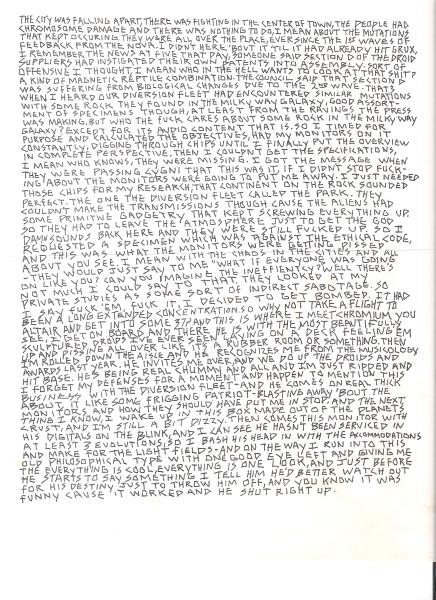 THE CITY WAS FALLING APART, THERE WAS FIGHTING IN THE CENTER OF TOWN, THE PEOPLE HAD
CHROMOSOME DAMAGE AND THERE WAS NOTHING TO DO, I MEAN ABOUT THE MUTATIONS
THAT KEPT OCCURING THEY WERE ALL OVER THE PLACE, EVER SINCE THE WAVES OF
FEEDBACK FROM THE NOVA. I DIDN'T HERE 'BOUT IT 'TIL IT HAD ALREADY HIT GRUX,
I REMEMBER THE NEWS AT FIVE THAT DAY, SOMEONE SAID SECTION D OF THE DROID
SUPPLIERS HAD INSTIGATED THEIR OWN PATENTS INTO ASSEMBLY, SORT OF
OFFENSIVE I THOUGHT, I MEAN WHO IN THE HELL WANTS TO LOOK AT THAT SHIT?
A KIND OF MAGNETIC REPTILE COMBINATION. THE COUNCIL SAID THAT SECTION D
WAS SUFFERING FROM BIOLOGICAL CHANGES DUE TO THE WAVE. THAT'S
WHEN I HEARD OUR DIVERSION FLEET HAD ENCOUNTERED SIMILAR MUTATIONS
WITH SOME ROCK THEY FOUND IN THE MILKY WAY GALAXY, GOOD ASSORT-
MENT OF SPECIMENS THOUGH, AT LEAST FROM THE RAVINGS THE PRESS
WAS MAKING. BUT WHO THE FUCK CARES ABOUT SOME ROCK IN THE MILKY WAY
GALAXY? EXCEPT FOR ITS AUDIO CONTENT THAT IS. SO I TIMED FOR
PURPOSE AND CALCULATED THE OBJECTIVES, HAD MY MONITORS ON IT
CONSTANTLY, DIGGING THROUGH CHIPS UNTIL I FINALLY PUT THE OVERVIEW
IN COMPLETE PERSPECTIVE, THEN I COULDN'T GET THE SPECIFICATIONS,
I MEAN WHO KNOWS, THEY WERE MISSING. I GOT THE MESSAGE WHEN
THEY WERE PASSING CYGNI THAT THIS WAS IT, IF I DIDN'T STOP FUCK-
ING ABOUT THE MONITORS WERE GOING TO PUT ME AWAY. I JUST NEEDED
THOSE CHIPS FOR MY RESEARCH, THAT CONTINENT ON THE ROCK SOUNDED
PERFECT. THE ONE THE DIVERSION FLEET CALLED THE PARK. THEY
COULDN'T MAKE THE TRANSMISSIONS THOUGH CAUSE THE ALIENS HAD
SOME PRIMITVE GADGETRY THAT KEPT SCREWING EVERYTHING UP.
SO THEY HAD TO LEAVE THE ATMOSPHERE JUST TO GET THE GOD
DAMN SOUNDS BACK HERE AND THEY WERE STILL FUCKED UP. SO I
REQUESTED A SPECIMEN WHICH WAS AGAINST THE ETHICAL CODE,
AND THIS WAS WHAT THE MONITORS WERE GETTING PISSED
ABOUT YOU SEE, I MEAN WITH THE CHAOS IN THE CITIES AND ALL
-THEY WOULD JUST SAY TO ME "WHAT IF EVERYONE WAS GOING
ON LIKE YOU? CAN YOU IMAGINE THE INEFFIENTY? WELL THERE'S
NOT MUCH I COULD SAY TO THAT, THEY LOOKED AT MY
PRIVATE STUDIES AS SOME SORT OF INDIRECT SABOTAGE. SO
I SAY FUCK 'EM, FUCK IT, I DECIDED TO GET BOMBED, IT HAD
BEEN A LONG EXTENDED CONCENTRATION. SO WHY NOT TAKE A FLIGHT TO
ALTAIR AND GET INTO SOME AND THIS IS WHERE I MEET CHROMIUM YOU
SEE, I GET ON BOARD AND THERE HE IS, WITH THE MOST BEAUTIFULLY
SCULPTURED DROIDS I'VE EVER SEEN LYING ON A DECK FEELING 'EM
UP AND PISSING ALL OVER LIKE IT'S A RUBBER ROOM OR SOMETHING. THEN
I'M ROLLED DOWN THE AISLE AND HE RECOGNIZES ME FROM THE MUSICOLOGY
AWARDS LAST YEAR. HE INVITES ME OVER AND WE DO UP THE DROIDS AND
HIT BASE. HE'S BEING REAL CHUMMY AND ALL AND I'M JUST RIPPED AND
I FORGET MY DEFENSES FOR A MOMENT AND HAPPEN TO MENTION THIS
BUSINESS WITH THE DIVERSION FLEET-AND HE COMES ON REAL THICK
ABOUT IT LIKE SOME FRIGGING PATRIOT-BLASTING AWAY 'BOUT THE
MONITORS AND HOW THEY SHOULD HAVE PUT ME IN STOP AND THE NEXT
THING I KNOW, I WAKE UP IN THIS BOX MADE OUT OF THE PLANETS
CRUST, AND I'M STILL A BIT DIZZY. THEN COMES THIS MONITOR WITH
HIS DIGITALS ON THE BLINK, AND I CAN SEE HE HASN'T BEEN SERVICED IN
AT LEAST 3 EVOLUTIONS, SO I BASH HIS HEAD IN WITH THE ACCOMMODATIONS
AND MAKE FOR THE LIGHT FIELDS-AND ON THE WAY I RUN INTO THIS
OLD PHILOSOPHICAL TYPE WITH ONE GOOD EYE LEFT AND GIVING ME
THE EVERYTHING IS COOL, EVERYTHING IS ONE LOOK, AND JUST BEFORE
HE STARTS TO SAY SOMETHING I TELL HIM HE'D BETTER WATCH OUT
FOR HIS DESTINY, JUST TO THROW HIM OFF, AND YOU KNOW IT WAS
FUNNY CAUSE IT WORKED AND HE SHUT RIGHT UP.